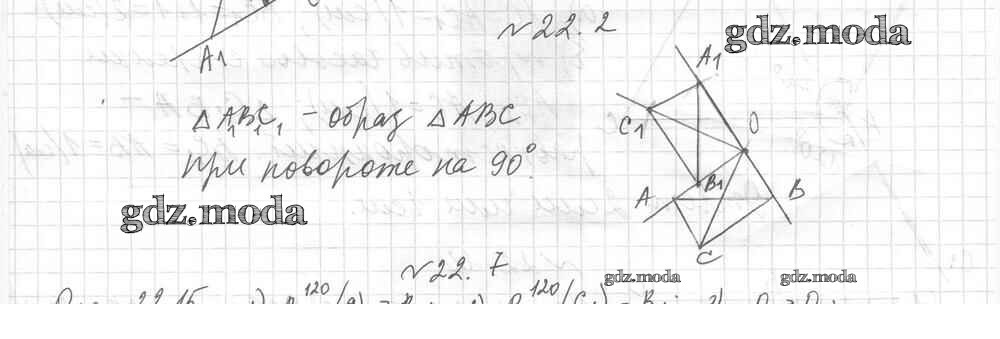 A1
№22.2
gdz.moda
A1
C1
O
△A₁B₁C₁ - образ △ABC
при повороте на 90°.
B1
A
B
C
gdz.moda
№22.7
gdz.moda
gdz.moda